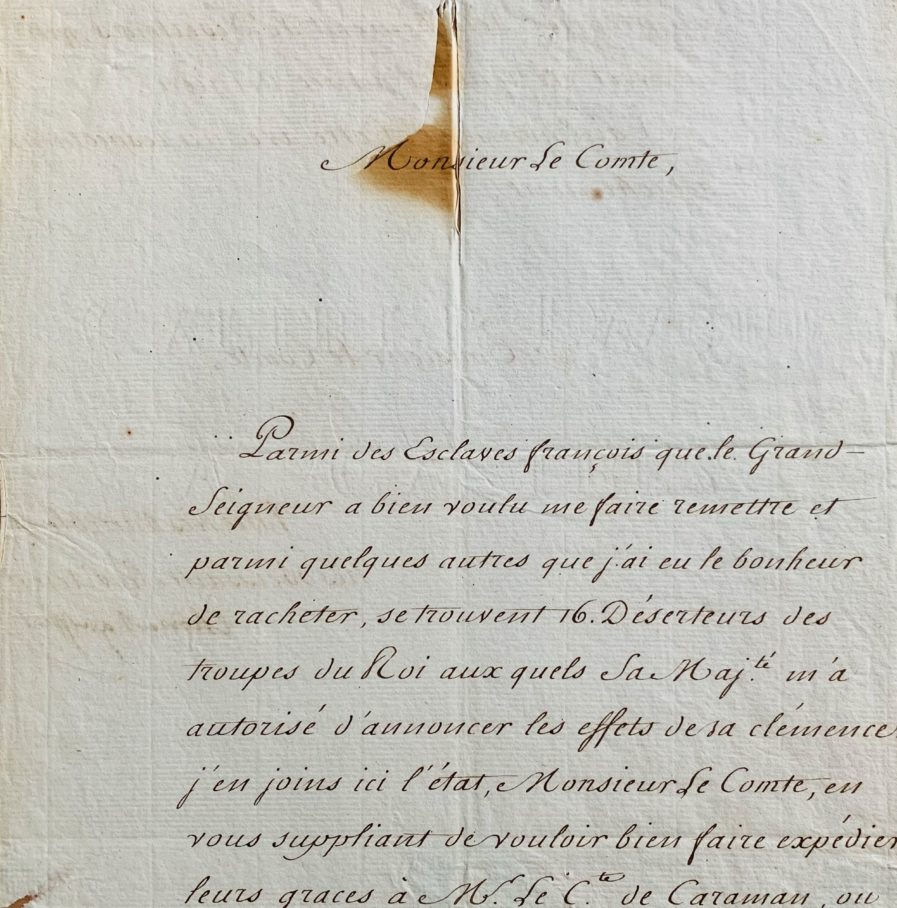 Monsieur Le Comte,
Parmi des Esclaves françois que le Grand-
Seigneur a bien voulu me faire remettre et
parmi quelques autres que j'ai eu le bonheur
de racheter, se trouvent 16. Déserteurs des
troupes du Roi aux quels Sa Maj.té m'a
autorisé d'annoncer les effets de sa clémence
j'en joins ici l'état, Monsieur Le Comte, en
vous suppliant de vouloir bien faire expédier
leurs graces à Mr. Le C.te de Caraman, ou